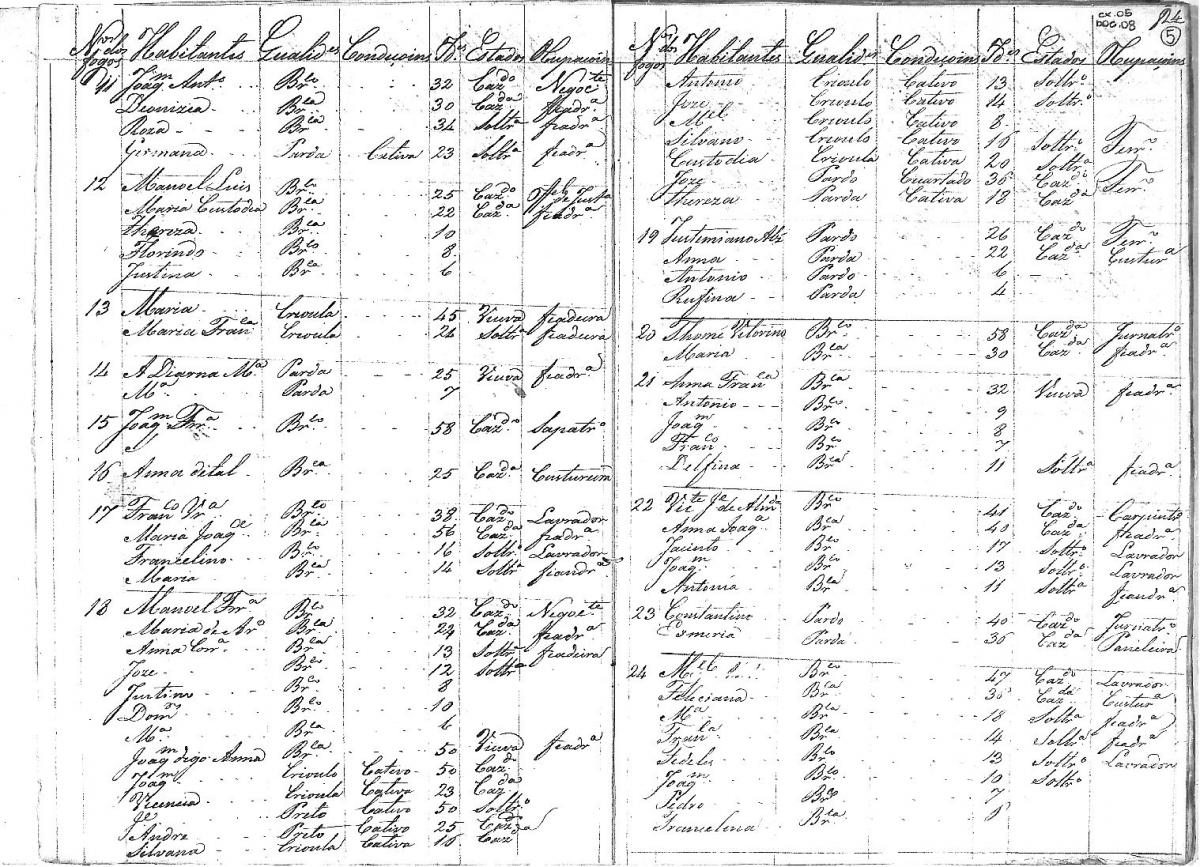 cx.05
DOC.08
24
5
Nos dos fogos Habitantes Qualides Conduçoins Ides Estados Ocupaçoins
11 Joaqm Anto Brco 32 Cazdo Negocte
Dionizia Brca 30 Cazda fiadra
Roza Brca 34 Soltra fiadra
Germana Parda Cativa 23 Soltra fiadra
12 Manoel Luis Brco 25 Cazdo
Maria Custodia Brca 22 Cazda fiadra
Thereza Brca 10
Florindo Brco 8
Justina Brca 6
13 Maria Crioula 45 Viuva fiadeira
Maria Franca Crioula 26 Soltra fiadeira
14 Parda 25 Viuva fiadra
Ma Parda 7
15 Joaqm Frra Brco 58 Cazdo Sapatro
16 Anna de tal Brca 25 Cazda Custureira
17 Franco Vra Brco 38 Cazdo Lavrador
Maria Joaqe Brca 56 Cazda fiadra
Francelino Brco 16 Soltro Lavrador
Maria Brca 14 Soltra fiandra
18 Manoel Frra Brco 32 Cazdo Negocte
Maria de Aro Brca 22 Cazda fiadra
Anna Corra Brca 13 Soltra fiadeira
Joze Brco 12 Soltro
Justino Brco 8
Domos Brco 10
Ma Brca 6
Joaqm digo Anna Brca 50 Viuva fiadra
Joaqm Crioulo Cativo 50 Cazdo
Vicencia Crioula Cativa 23 Cazda
Je Preto Cativo 50 Soltro
Andre Preto Cativo 25 Cazdo
Silvana Crioula Cativa 16 Cazda
Nos dos fogos Habitantes Qualides Conduçoins Ides Estados Ocupaçoins
Antonio Crioulo Cativo 13 Soltro
Joze Crioulo Cativo 14 Soltro
Mel Crioulo Cativo 8
Silvano Crioulo Cativo 16 Soltro Ferro
Custodia Crioula Cativa 20 Soltra
Joze Pardo Cuartado 36 Cazdo Ferro
Thereza Parda Cativa 18 Cazda
19 Justiniano Alz Pardo 26 Cazdo Ferro
Anna Parda 22 Cazda Custura
Antonio Pardo 6
Rufina Parda 4
20 Thomé Vitorino Brco 58 Cazdo Jurnatro
Maria Brca 30 Cazda fiadra
21 Anna Franca Brca 32 Viuva fiadra
Antonio Brco 9
Joaqm Brco 8
Franco Brco 7
Delfina Brca 11 Soltra fiadra
22 Victe Je de Almda Brco 41 Cazdo Carpintro
Anna Joaqa Brca 40 Cazda fiadra
Jacinto Brco 17 Soltro Lavrador
Joaqm Brco 13 Soltro Lavrador
Antonia Brca 11 Soltra fiandra
23 Constantino Pardo 40 Cazdo Jurnatro
Esmeria Parda 36 Cazda Paneleira
24 Mel Brco 47 Cazdo Lavrador
Feleciana Brca 36 Cazda Custura
Ma Brca 18 Soltra fiadra
Franca Brca 14 Soltra fiadra
Fedeles Brco 13 Soltro Lavrador
Joaqm Brco 10 Soltro
Pedro Brco 7
Francelina Brca